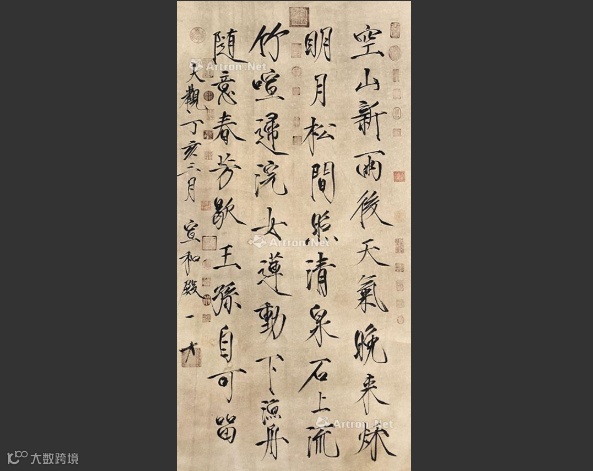 空山新雨後天氣晚來秋
明月松間照清泉石上流
竹喧歸浣女蓮動下漁舟
隨意春芳歇王孫自可留
大觀丁亥三月宣和殿
Artron.Net
Artron.Net
Artron.Net
大数跨境